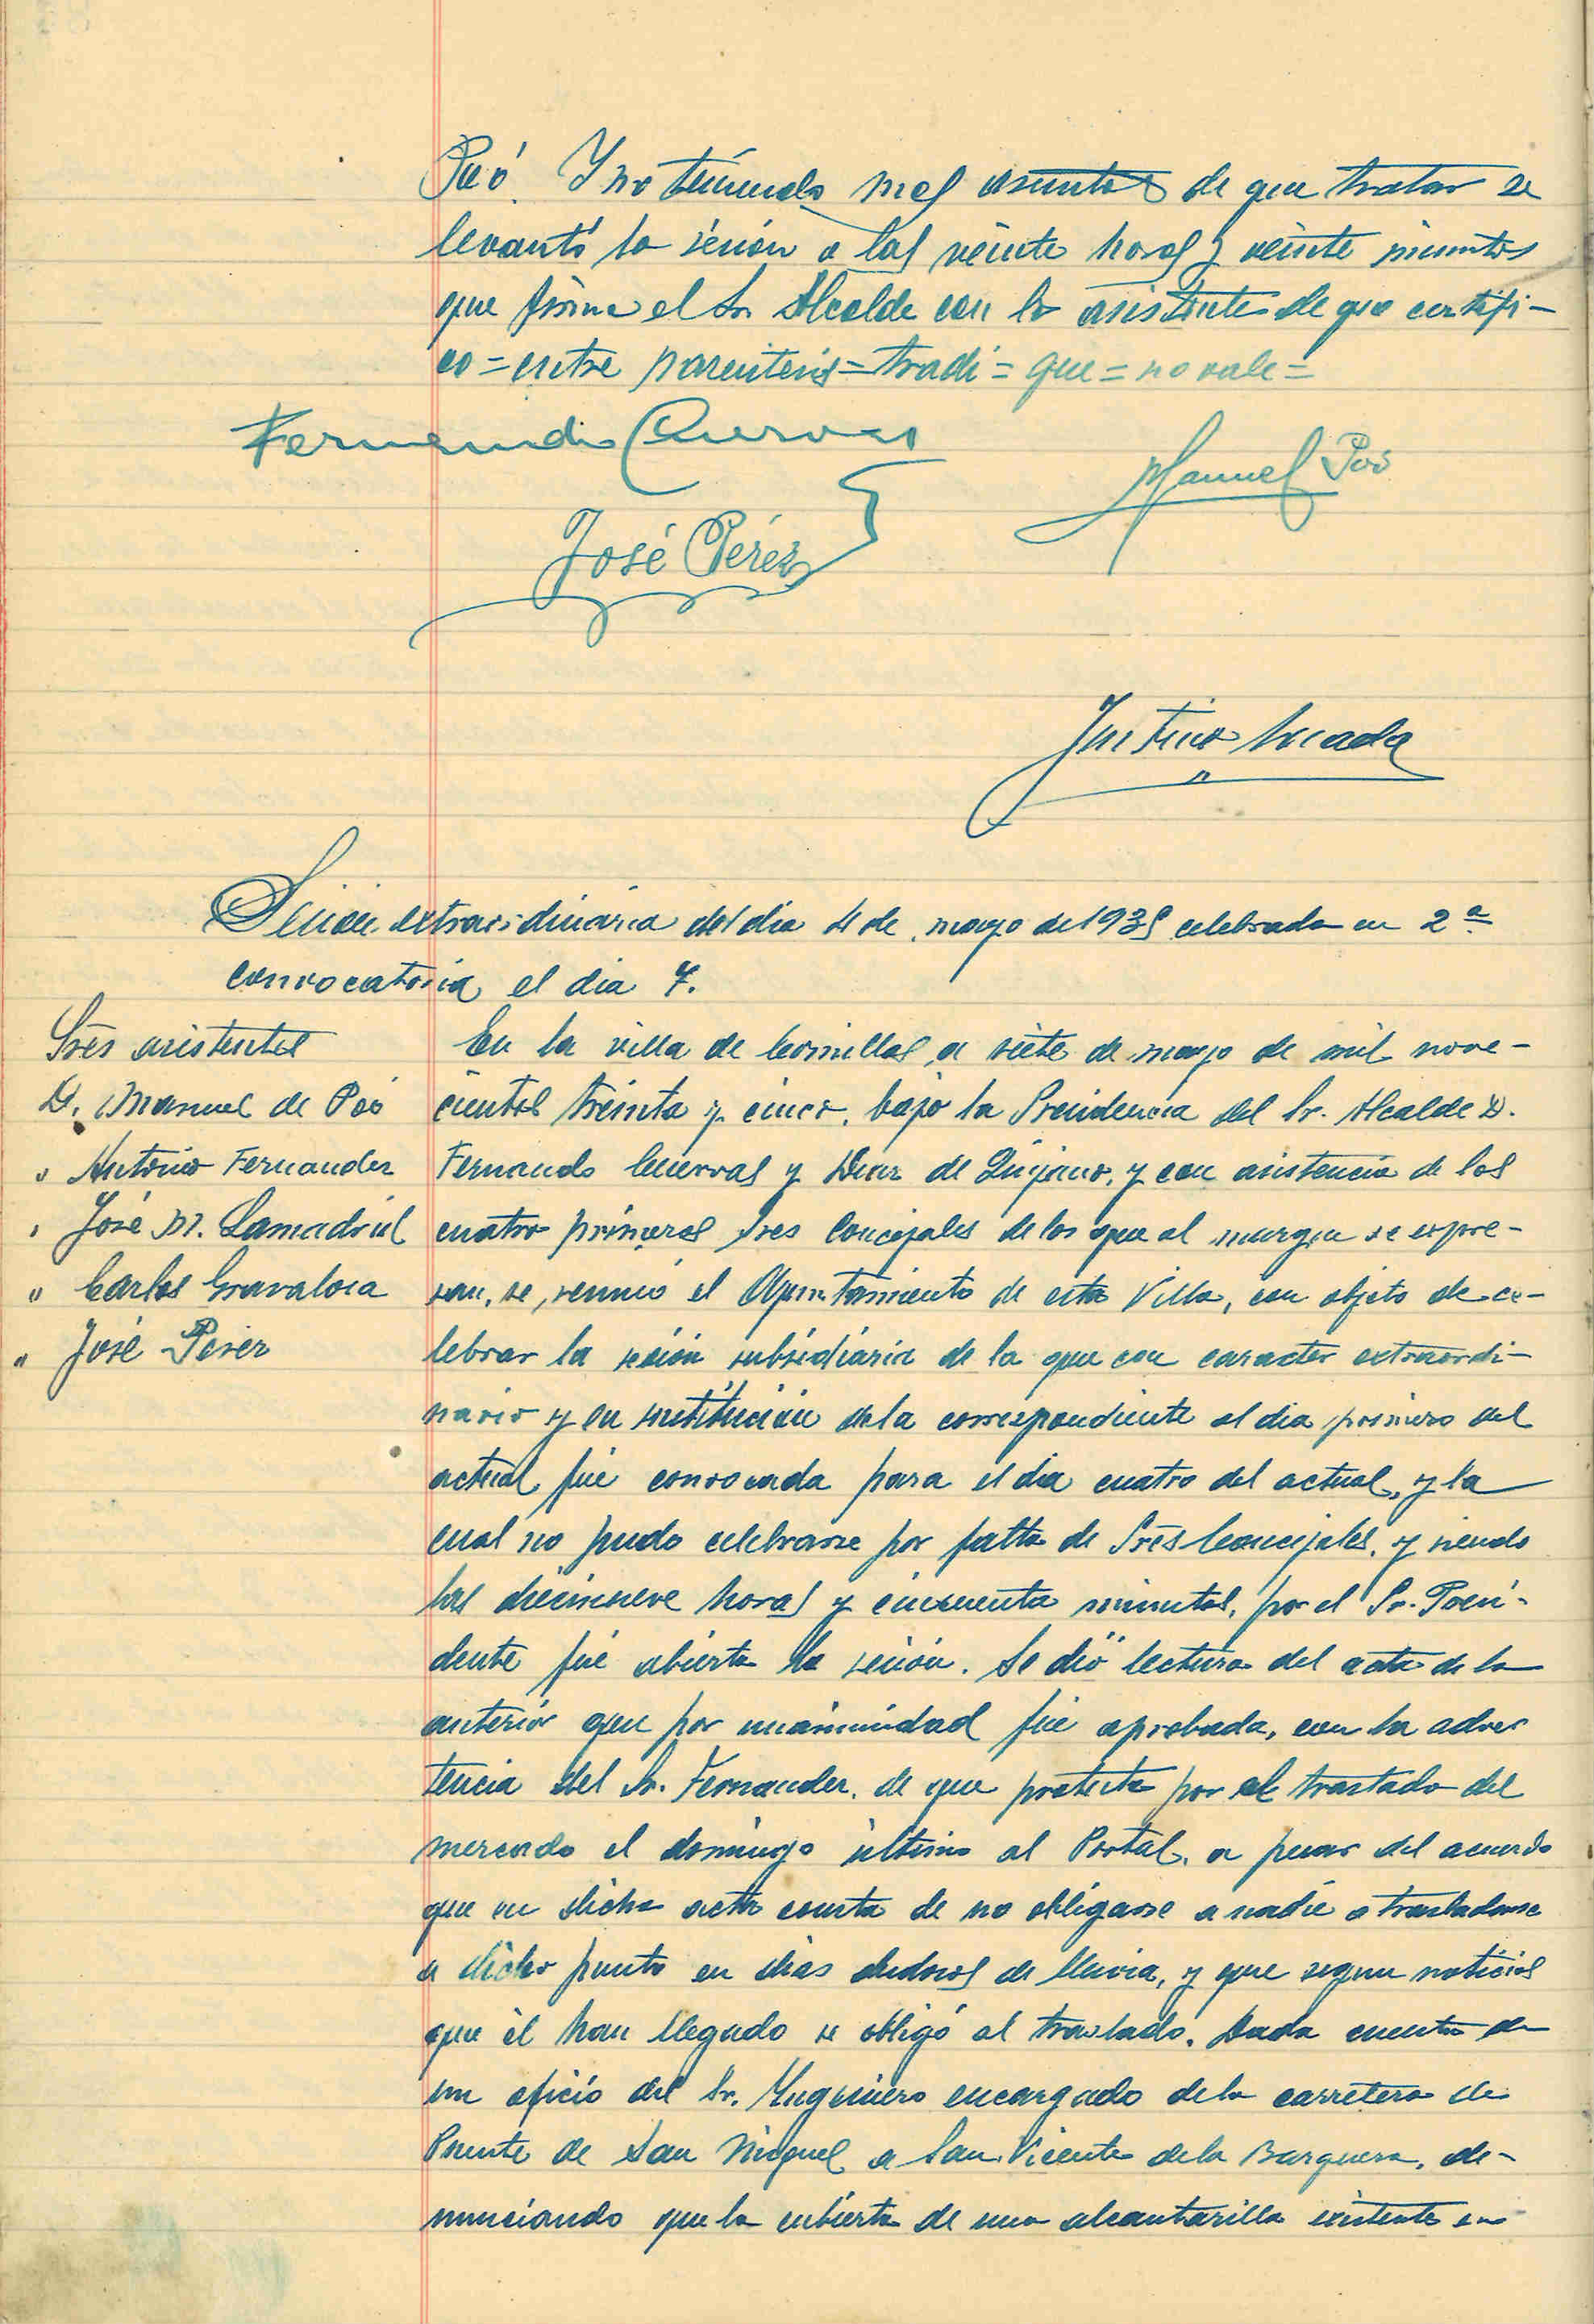 Poó. Y no teniendo mas asuntos de que tratar se
levantó la sesión a las veinte horas y veinte minutos
que firma el Sr. Alcalde con los asistentes de que certifi-
co = entre parentesis = tradi = que = no vale =
Fernando Cuevas
Manuel Poó
José Pérez
Justino
Sesion extraordinaria del dia 4 de mayo de 1935 celebrada en 2ª
convocatoria el dia 7.
Sres asistentes
D. Manuel de Poó
" Antonio Fernandez
" José M. Lamadrid
" Carlos Gravalosa
" José Perez
En la villa de Comillas a siete de mayo de mil nove-
cientos treinta y cinco, bajo la Presidencia del Sr. Alcalde D.
Fernando Cuevas y Diaz de Quijano, y con asistencia de los
cuatro primeros Sres Concejales de los que al margen se expre-
san, se reunió el Ayuntamiento de esta Villa, con objeto de ce-
lebrar la sesión subsidiaria de la que con caracter extraordi-
nario y en sustitución de la correspondiente al dia primero del
actual fué convocada para el dia cuatro del actual, y la
cual no pudo celebrarse por falta de Sres Concejales, y siendo
las diecinueve horas y cincuenta minutos, por el Sr. Presi-
dente fué abierta la sesión. Se dió lectura del acta de la
anterior que por unanimidad fué aprobada, con la adver
tencia del Sr. Fernandez, de que protesta por el traslado del
mercado el domingo último al Portal, a pesar del acuerdo
que en dicha acta consta de no obligarse a nadie a trasladarse
a dicho punto en dias dudosos de lluvia, y que segun noticias
que él han llegado se obligó al traslado. Dada cuenta de
un oficio del Sr. Yngeniero encargado de la carretera de
Puente de San Miguel a San Vicente de la Barquera, de-
nunciando que la cubierta de una alcantarilla existente en